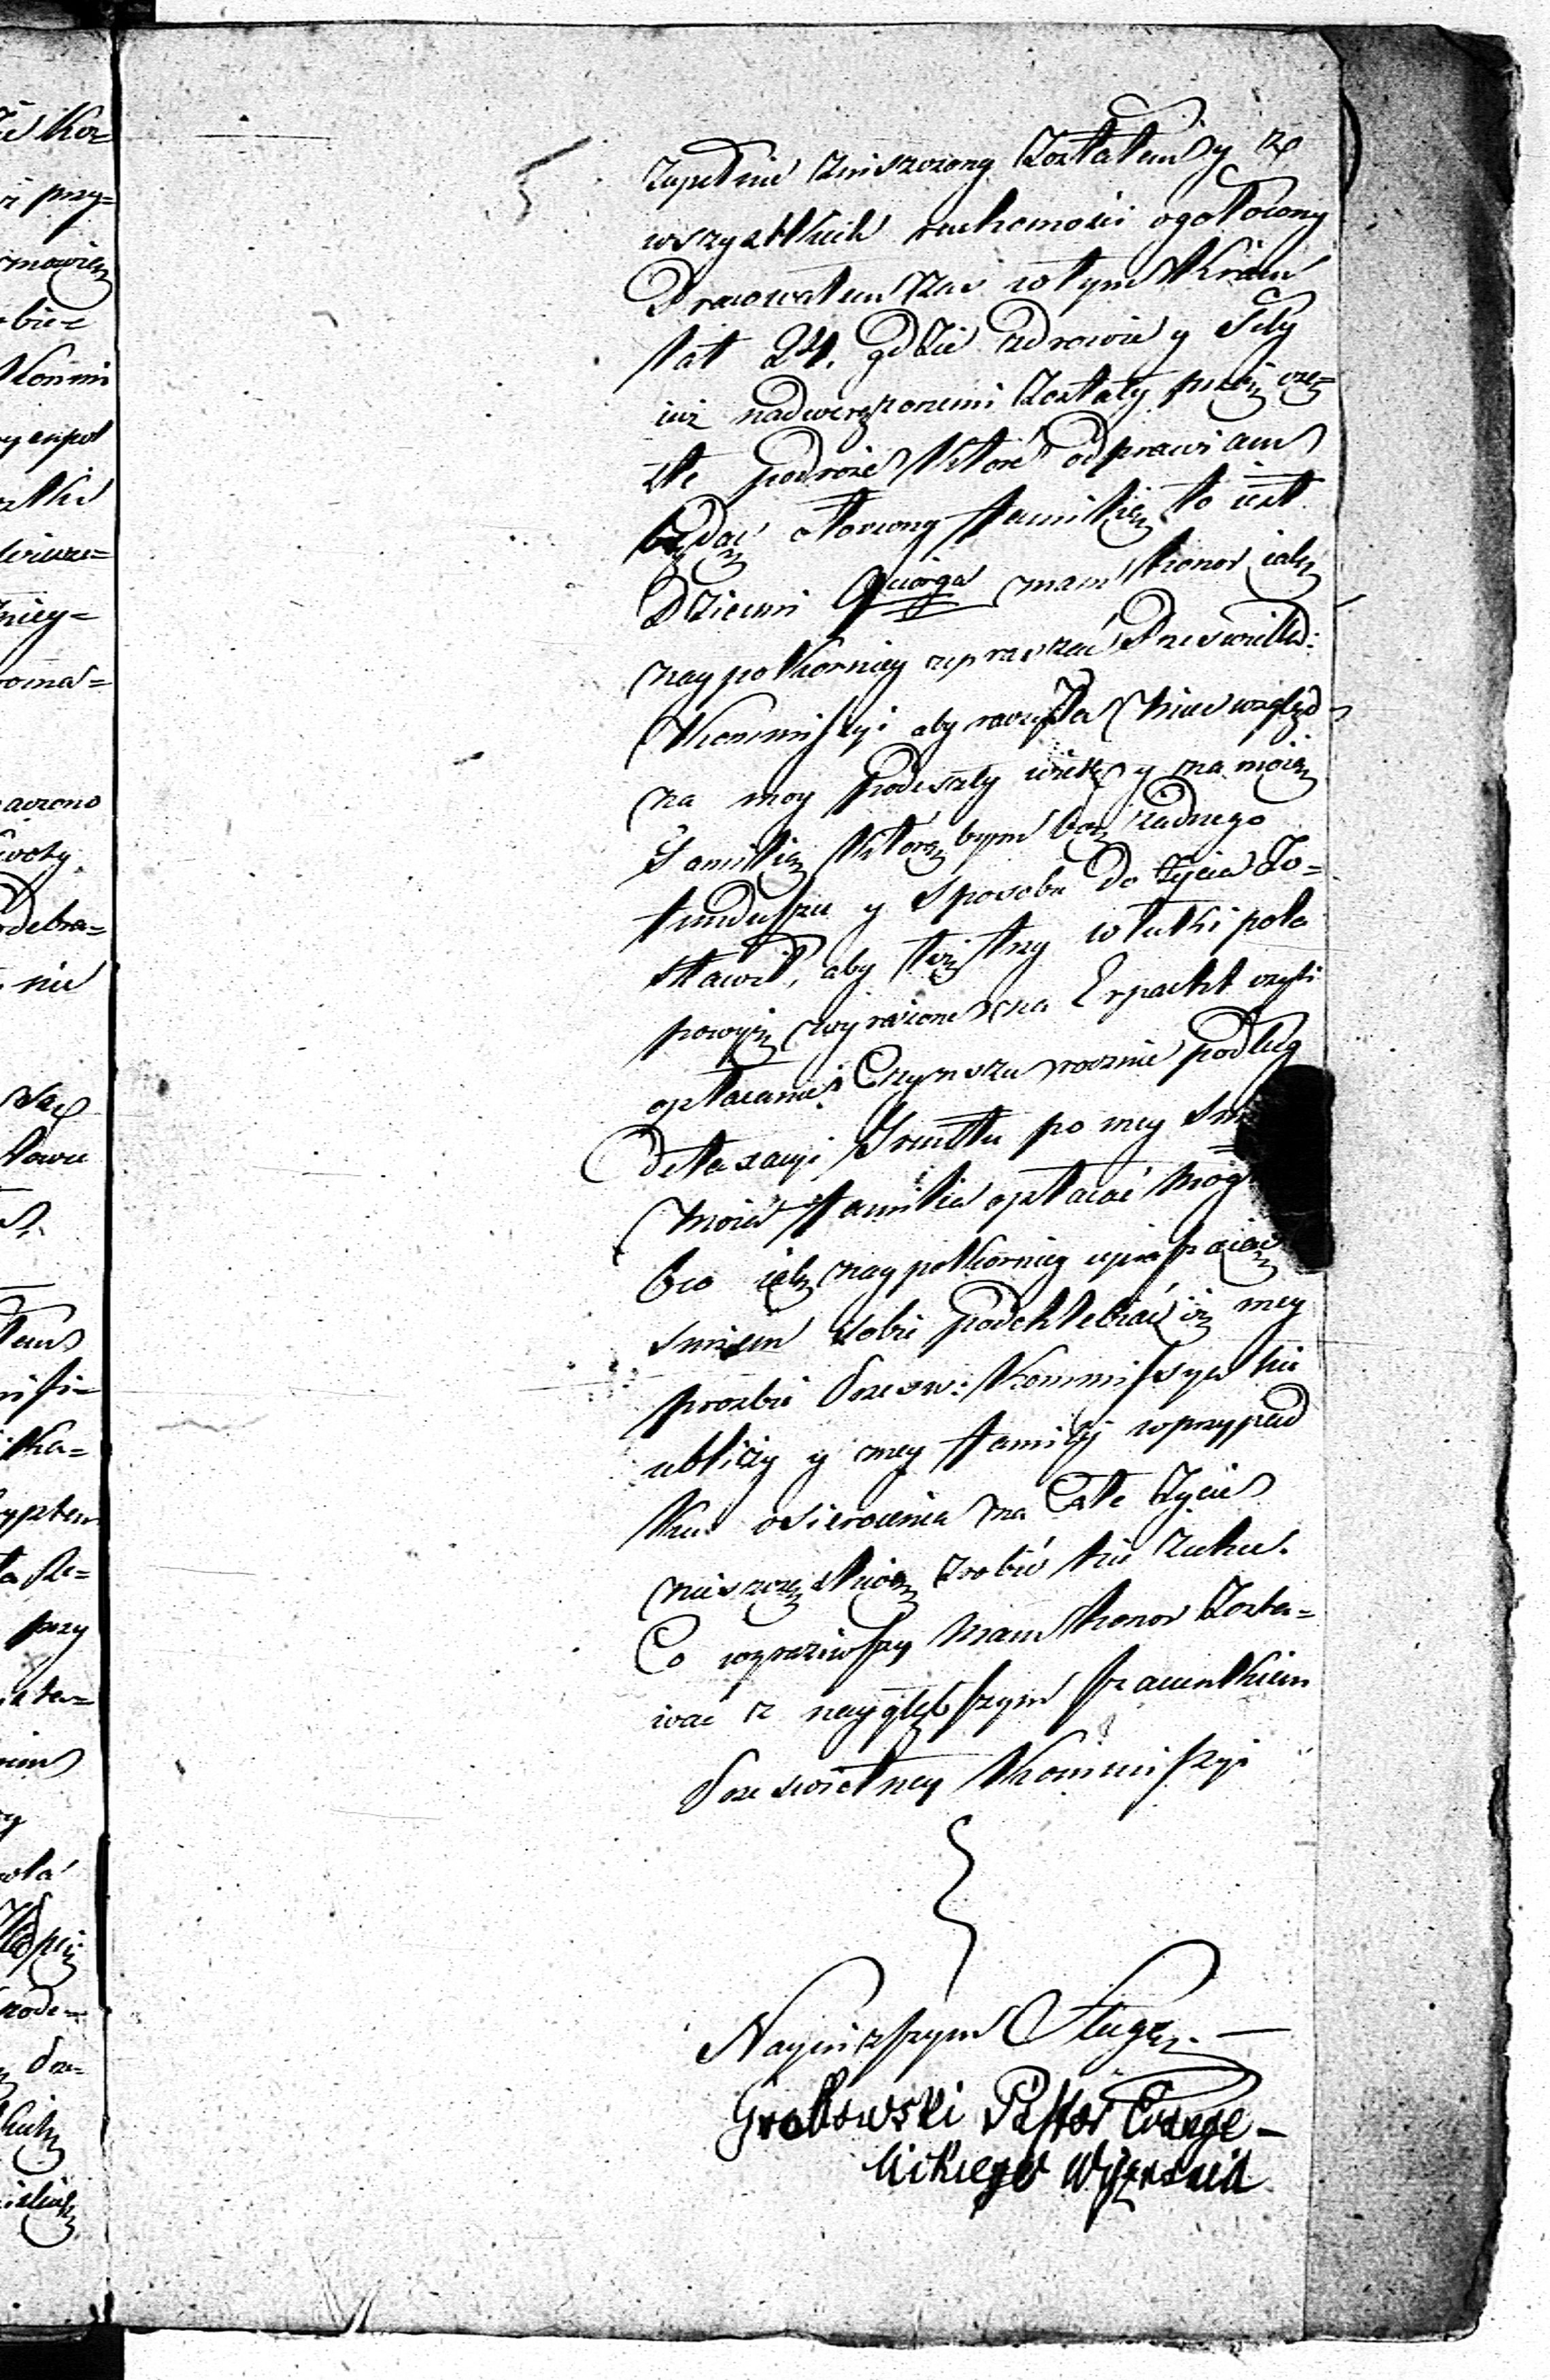 zupełnie zniszczony zostałem y ze
wszystkich ruchomości ogołocony
Pracowałem zaś w tym Kraiu
lat 24. gdzie zdrowie y siły
iuż nadwerężonemi zostały przez czę=
ste podróże które odprawiam
będąc otoczony familią to iest
Dziećmi mam honor iak
naypokorniey upraszać Prześwietn:
Kommissyi aby raczyła mieć wzgląd
na moy podeszły wiek y na moią
Familią którą bym bez żadnego
funduszu y sposobu do życia zo=
stawił, aby też trzy włuki pola
powyż wyrażone na Erpacht czyli
opłacanie Czynszu rocznie podług
detaxacyi Gruntu po mey
moia familia opłacać
bo iak naypokorniey upraszaiąc
śmiem sobie podchlebiać iż mey
prozbie Przesw: Kommissya nie
ubliży y mey familij w przypad
ku osierocenia na całe życie
nieszczęśliwą zrobić nie zechce.
Co wyraziwszy mam honor zosta=
wać z naygłębszym szacunkiem
Prześwietney Kommissyi
Nayniższym Sługą. —
Grabowski Pastor Ewange-
lickiego Wyznania